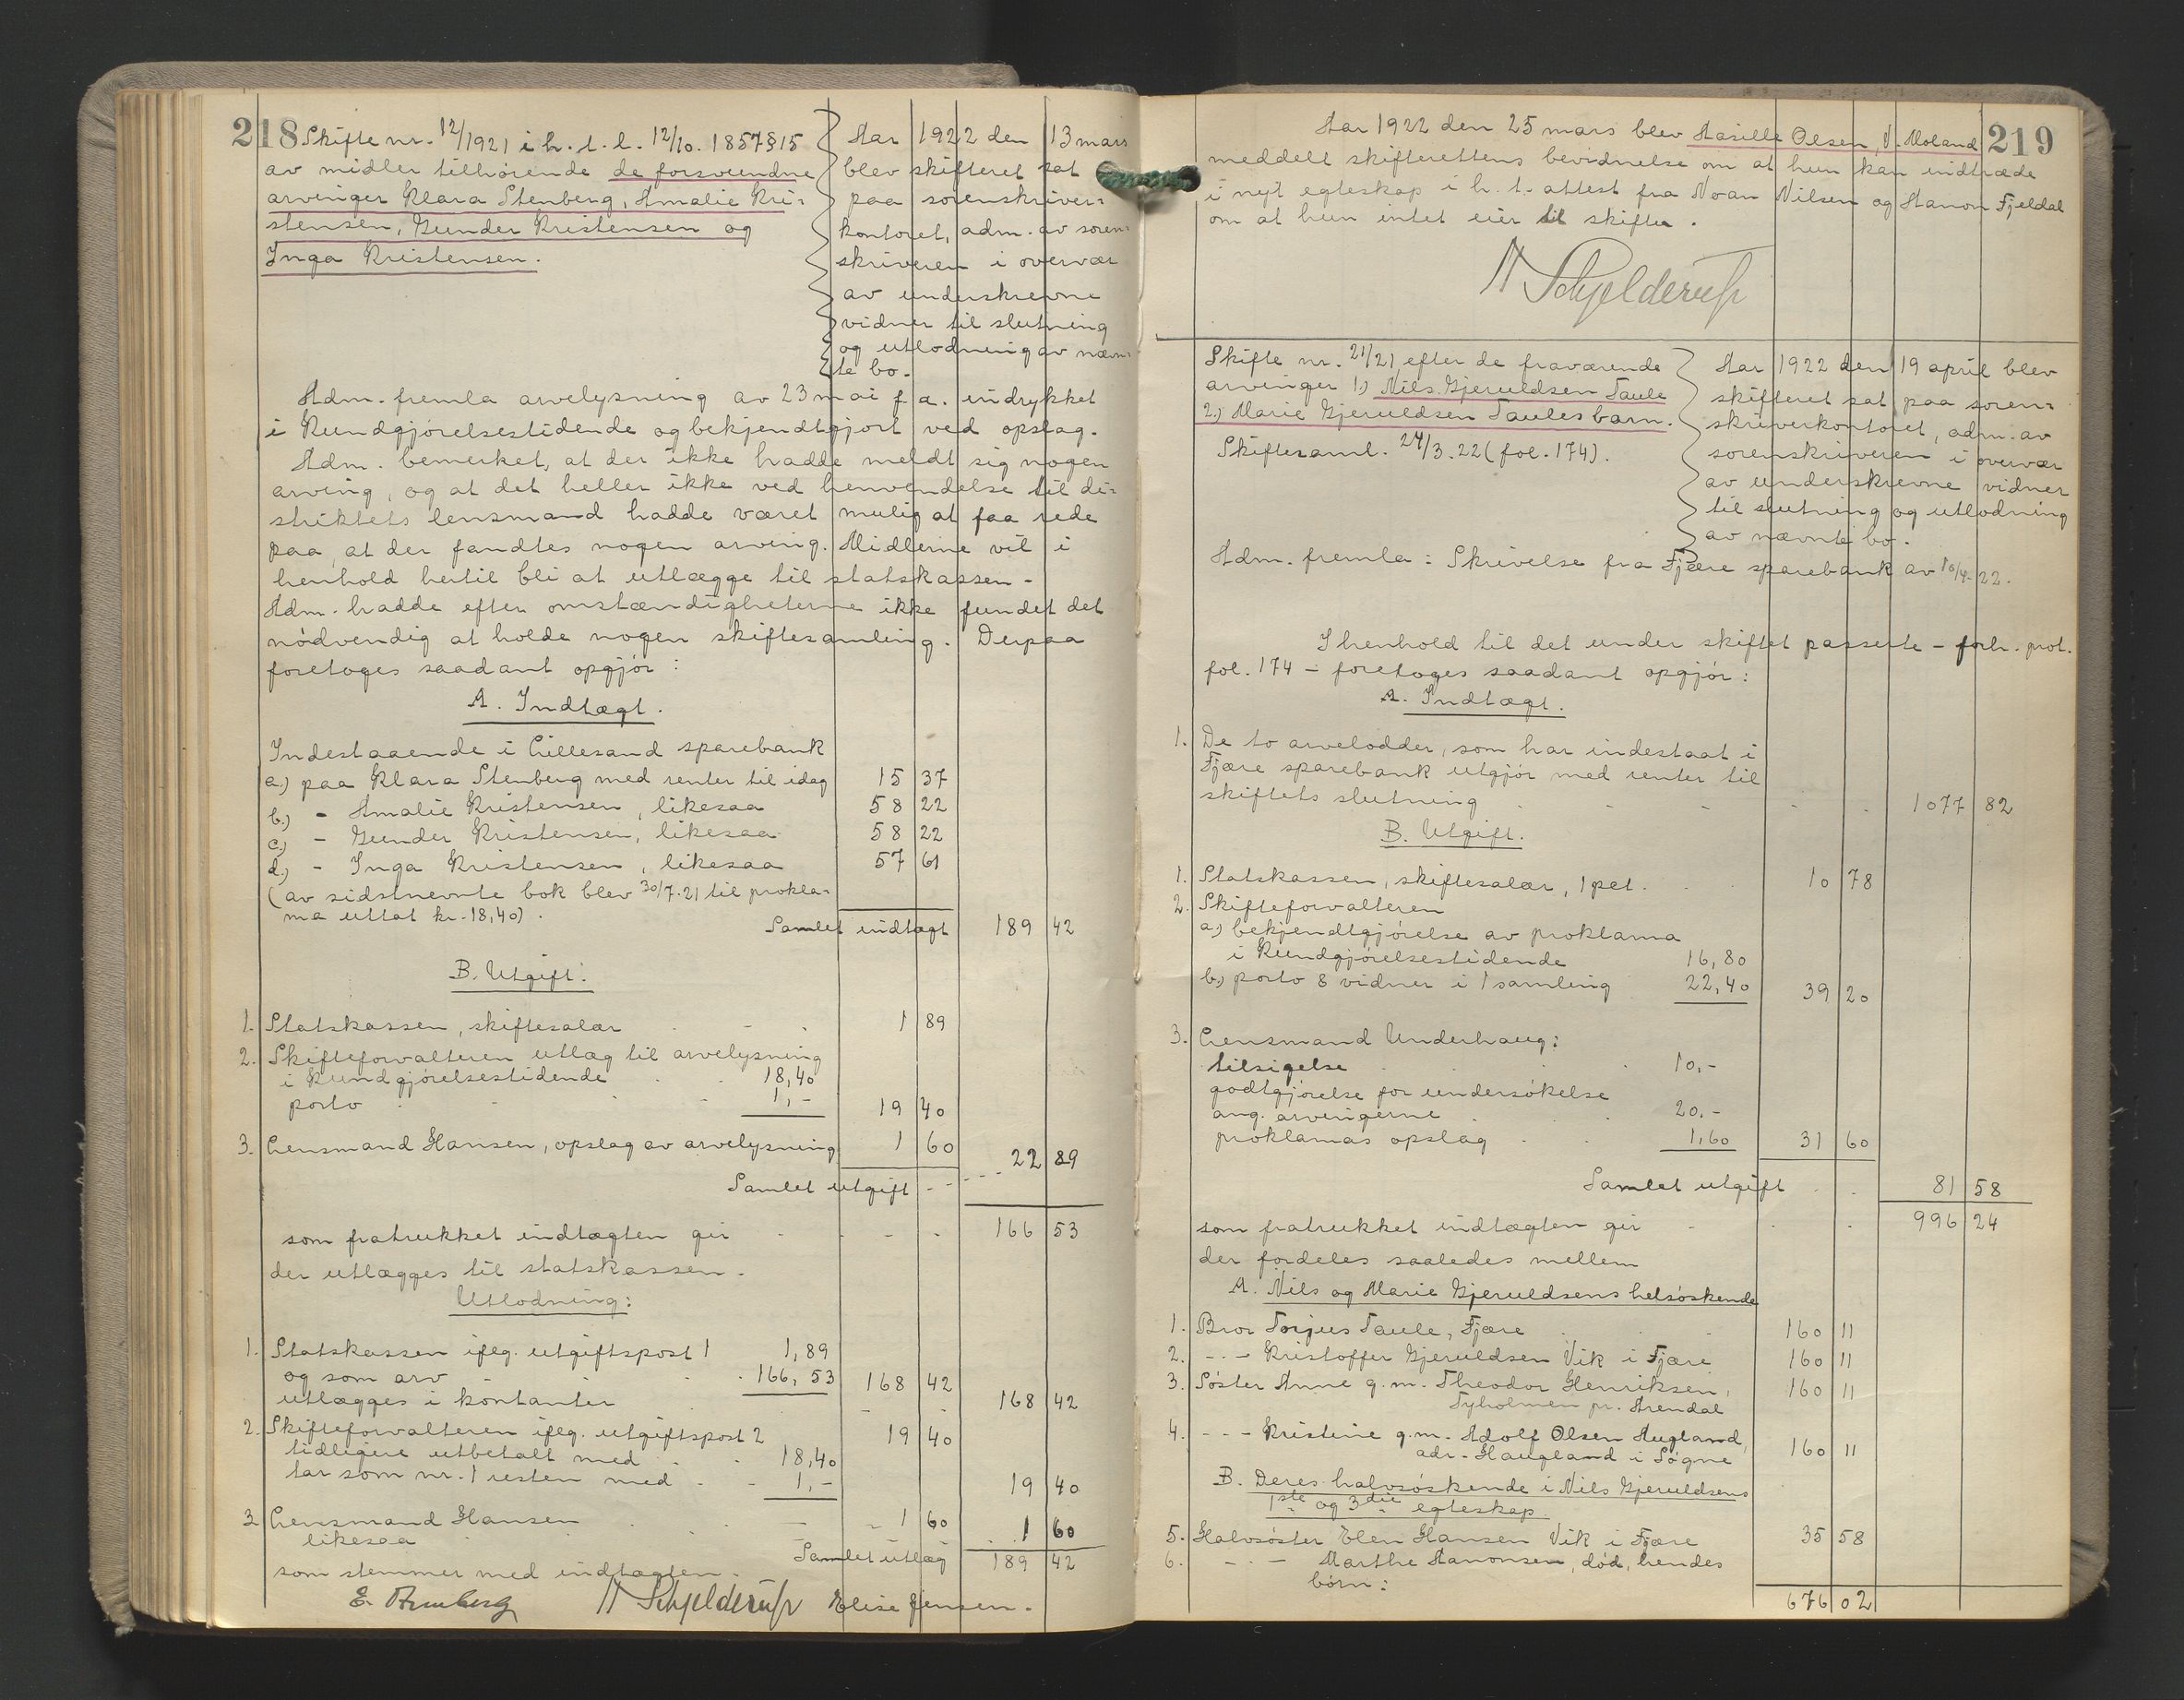 218
Skifte nr. 12/1921 i h. t. l. 12/10. 1857 § 15
av midler tilhørende de forsvundne
arvinger Klara Stenberg, Amalie Kri-
stensen, Gunder Kristensen og
Inga Kristensen.
Aar 1922 den 13 mars
blev skifteret sat
paa sorenskriver-
kontoret, adm. av soren-
skriveren i overvær
av underskrevne
vidner til slutning
og utlodning av nævn-
te bo.
Adm. fremla arvelysning av 23 mai f. a. indrykket
i Kundgjørelsestidende og bekjendtgjort ved opslag.
Adm. bemerket, at der ikke hadde meldt sig nogen
arving, og at det heller ikke ved henvendelse til di-
striktets lensmand hadde været mulig at faa rede
paa, at der fandtes nogen arving. Midlerne vil i
henhold hertil bli at utlægge til statskassen.
Adm. hadde efter omstændigheterne ikke fundet det
nødvendig at holde nogen skiftesamling. Derpaa
foretoges saadant opgjør:
A. Indtægt.
Indestaaende i Lillesand sparebank
a.) paa Klara Stenberg med renter til idag 15 37
b.) - Amalie Kristensen, likesaa 58 22
c.) - Gunder Kristensen, likesaa 58 22
d.) - Inga Kristensen, likesaa 57 61
(av sidstnevnte bok blev 30/7.21 til prokla-
ma uttat kr. 18,40).
Samlet indtægt 189 42
B. Utgift:
1. Statskassen, skiftesalær 1 89
2. Skifteforvalteren utlæg til arvelysning
i Kundgjørelsestidende 18,40
porto 1,- 19 40
3. Lensmand Hansen, opslag av arvelysning 1 60
22 89
Samlet utgift
som fratrukket indtægten gir 166 53
der utlægges til statskassen.
Utlodning:
1. Statskassen ifølg. utgiftspost 1 1,89
og som arv 166,53 168 42
utlægges i kontanter 168 42
2. Skifteforvalteren ifølg. utgiftspost 2 19 40
tidligere utbetalt med 18,40
tar som nr. 1 resten med 1,- 19 40
3. Lensmand Hansen 1 60
likesaa 1 60
Samlet utlæg 189 42
som stemmer med indtægten.
E. N Schjelderup Elise Jensen.
219
Aar 1922 den 25 mars blev Aasille Olsen, V. Moland
meddelt skifterettens bevidnelse om at hun kan indtræde
i nyt egteskap i h. t. attest fra Noan Nilsen og Aanon Fjeldal
om at hun intet eier til skifte.
N Schjelderup
Skifte nr. 21/21 efter de fraværende
arvinger 1.) Nils Gjeruldsen Taule
2.) Marie Gjeruldsen Taulesbarn.
Skiftesaml. 24/3.22 (fol. 174).
Aar 1922 den 19 april blev
skifteret sat paa soren-
skriverkontoret, adm. av
sorenskriveren i overvær
av underskrevne vidner
til slutning og utlodning
av nævnte bo.
Adm. fremla: Skrivelse fra Fjære sparebank av 10/4-22.
I henhold til det under skiftet passerte - forh. prot.
fol. 174 - foretoges saadant opgjør:
A. Indtægt.
1. De to arvelodder, som har indestaat i
Fjære sparebank utgjør med renter til
skiftets slutning 1077 82
B. Utgift.
1. Statskassen, skiftesalær, 1 pct. 10 78
2. Skifteforvalteren
a.) bekjendtgjørelse av proklama
i Kundgjørelsestidende 16,80
b.) porto & vidner i 1 samling 22,40 39 20
3. Lensmand Underhaug:
tilsigelse 10,-
godtgjørelse for undersøkelse
ang. arvingerne 20,-
proklamas opslag 1,60 31 60
Samlet utgift 81 58
som fratrukket indtægten gir 996 24
der fordeles saaledes mellem
A. Nils og Marie Gjeruldsens helsøskende
1. Bror Torjus Taule, Fjære 160 11
2. - - - Kristoffer Gjeruldsen Vik i Fjære 160 11
3. Søster Anne g. m. Theodor Henriksen, 160 11
Tyholmen pr. Arendal
4. - - - Kristine g. m. Adolf Olsen Augland,
adr. Haugland i Søgne 160 11
B. Deres halvsøskende i Nils Gjeruldsens
1ste og 3die egteskap
5. Halvsøster Elen Hansen Vik i Fjære 35 58
6. - - - Marthe Aanonsen, død, hendes
børn:
676 02